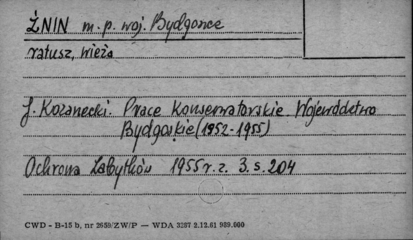 ŻNIN m.p. woj. Bydgoszcz
ratusz, wieża
J. Kozanecki. Prace Konserwatorskie Województwo
Bydgoskie (1952-1955)
Ochrona Zabytków 1955 r. z. 3. s. 204
CWD - B-15 b, nr 2650/ZW/P — WDA 3287 2.12.61 989.000